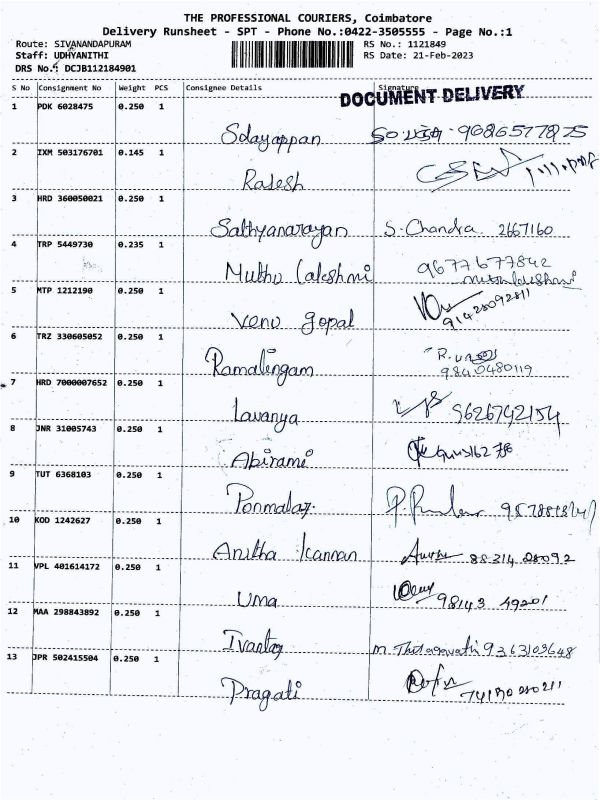 THE PROFESSIONAL COURIERS, Coimbatore
Delivery Runsheet - SPT - Phone No.:0422-3505555 - Page No.:1
Route: SIVANANDAPURAM
RS No.: 1121849
Staff: UDHYANITHI
RS Date: 21-Feb-2023
DRS No.: DCJB112184901
S No Consignment No Weight PCS Consignee Details Signature
DOCUMENT DELIVERY
1 PDK 6028475 0.250 1
Sdayappan 9686577875
2 IXM 503176701 0.145 1
Rajesh
3 HRD 360050021 0.250 1
Sathyanarayan S. Chandra 2667160
4 TRP 5449730 0.235 1
Muthu Lakshmi 9677677842
5 MTP 1212190 0.250 1
Venu gopal 91428092811
6 TRZ 330605052 0.250 1
Ramalingam 9840480119
7 HRD 7000007652 0.250 1
Lavanya 9626742154
8 JNR 31005743 0.250 1
Abirami
9 TUT 6368103 0.250 1
Ponmalar
10 KOD 1242627 0.250 1
Anitha Kannan 88314 28092
11 VPL 401614172 0.250 1
Uma 98143 49201
12 MAA 298843892 0.250 1
9363103648
13 JPR 502415504 0.250 1
Pragati